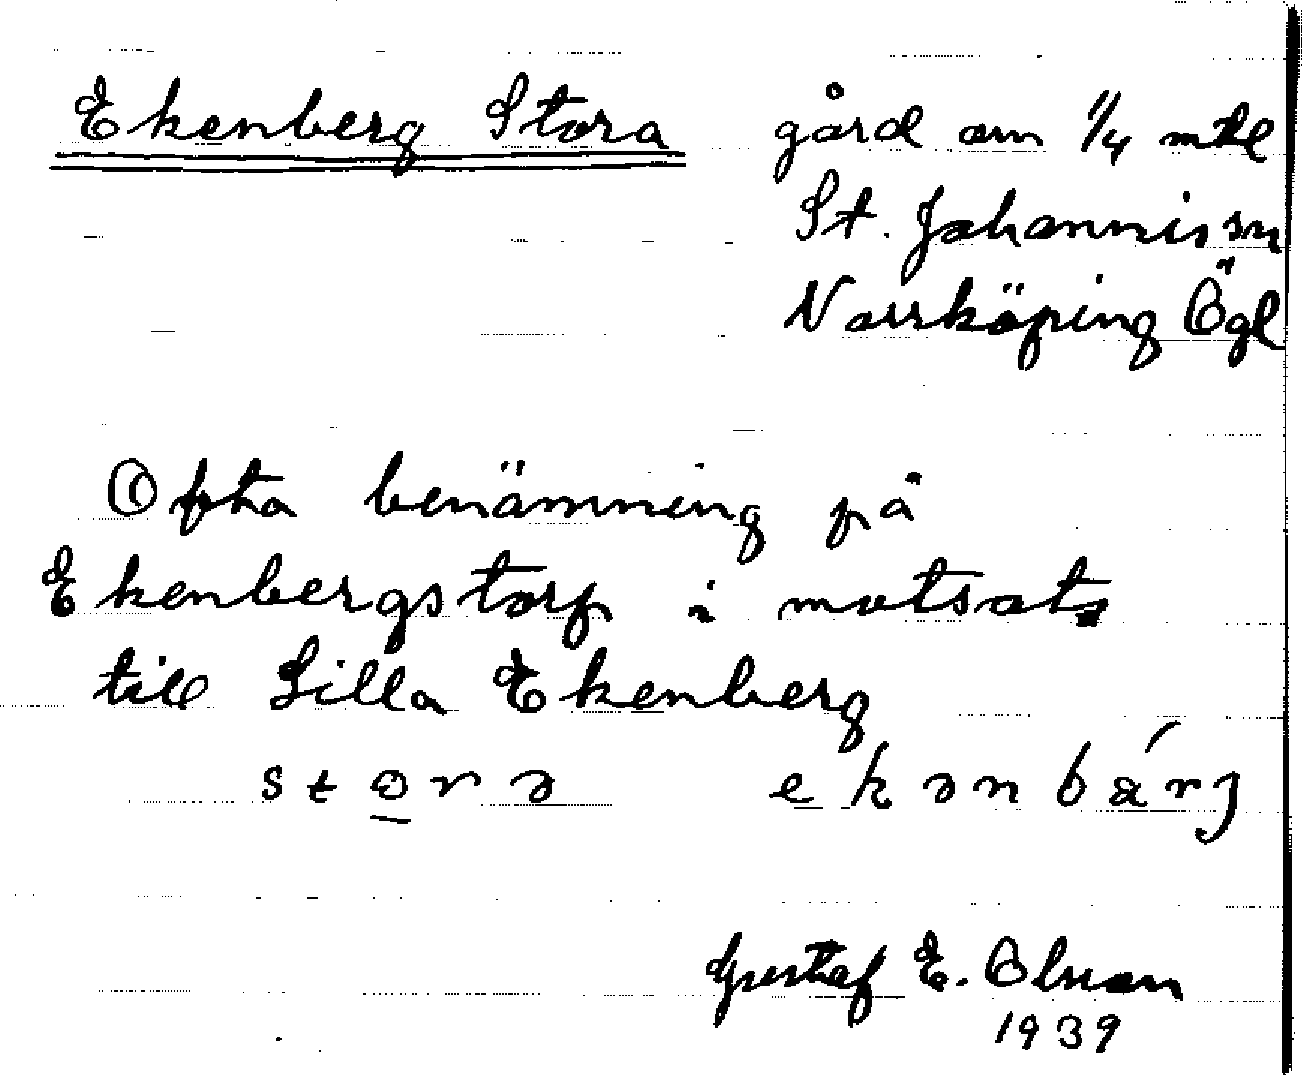 Ekenberg Stora gård om 1/4 mtl
St. Johannis sn
Norrköping Ögl
Ofta benämning på
Ekenbergstorp i motsats
till Lilla Ekenberg
storə ekənbärj
Gustaf E. Olsson
1939